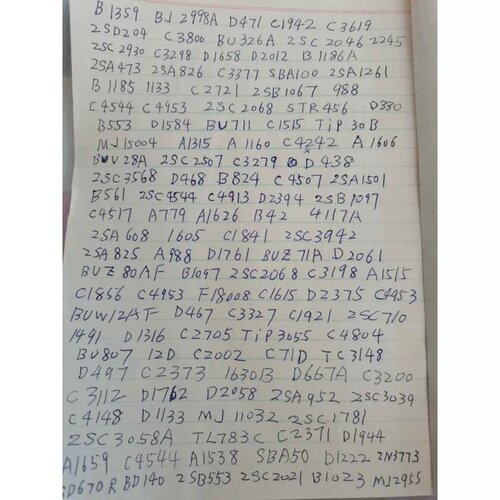 B1359 BJ 2998A D471 C1942 C3619
2SD204 C3800 BU326A 2SC2046 2245
2SC2930 C3298 D1658 D2012 B1186A
2SA473 2SA826 C3377 SBA100 2SA1261
B1185 1133 C2721 2SB1067 988
C4544 C4953 2SC2068 STR456 D330
B553 D1584 BU711 C1515 TiP30B
MJ15004 A1315 A1160 C4242 A1606
BUV28A 2SC2507 C3279 D438
2SC3568 D468 B824 C4507 2SA1501
B561 2SC4544 C4913 D2394 2SB1097
C4517 A779 A1626 B42 4117A
2SA608 1605 C1841 2SC3942
2SA825 A988 D1761 BUZ71A D2061
BUZ80AF B1097 2SC2068 C3198 A1515
C1856 C4953 F18008 C1615 D2375 C4953
BUW12AF D467 C3327 C1921 2SC710
1491 D1316 C2705 TiP3055 C4804
BU807 12D C2002 C71D TC3148
D497 C2373 1630B D667A C3200
C3112 D1762 D2058 2SA952 2SC3039
C4148 D1133 MJ11032 2SC1781
2SC3058A TL783C C2371 D1944
A1659 C4544 A1538 SBA50 D1222 2N3773
SD670R BD140 2SB553 2SC2021 B1023 MJ2955